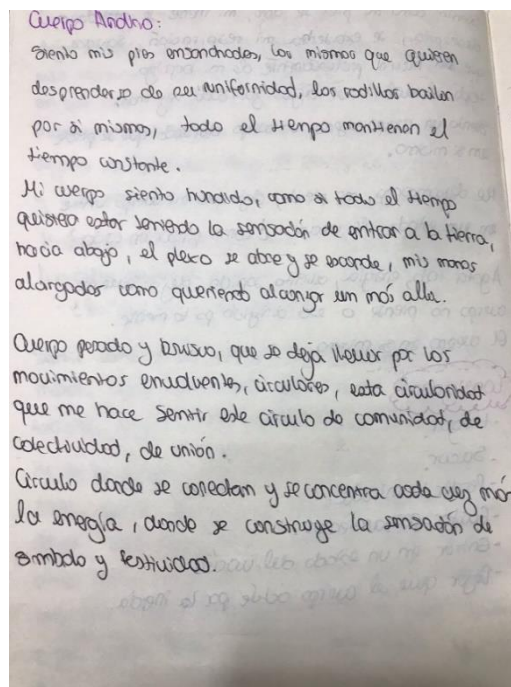 Cuerpo Andino:
Siento mis pies ensanchados, los mismos que quieren
desprenderse de su uniformidad, las rodillas bailan
por si mismas, todo el tiempo mantienen el
tiempo constante.
Mi cuerpo siento hundido, como si todo el tiempo
quisiera estar teniendo la sensación de entrar a la tierra,
hacia abajo, el plexo se abre y se esconde, mis manos
alargadas como queriendo alcanzar un más allá.
Cuerpo pesado y brusco, que se deja llevar por los
movimientos envolventes, circulares, esta circularidad
que me hace sentir este circulo de comunidad, de
colectividad, de unión.
Circulo donde se conectan y se concentra cada vez más
la energía, donde se construye la sensación de
símbolo y festividad.